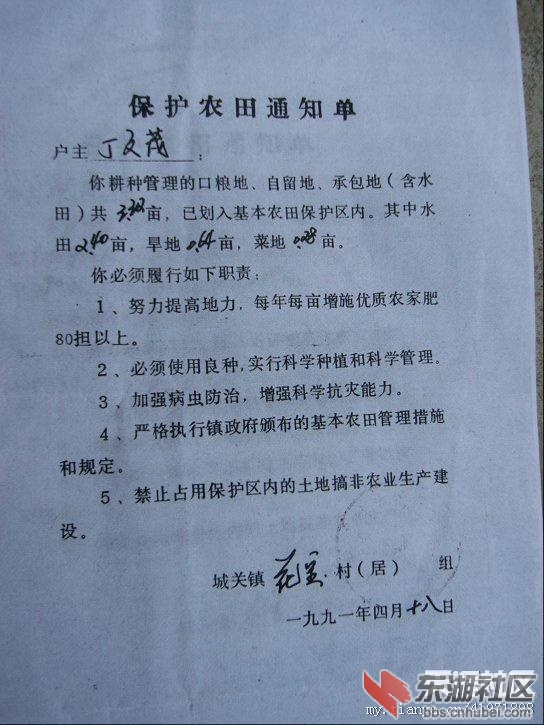 保护农田通知单
户主 丁文茂 :
你耕种管理的口粮地、自留地、承包地(含水
田)共 3.32亩,已划入基本农田保护区内。其中水
田2.40亩,旱地0.64亩,菜地0.28亩。
你必须履行如下职责:
1、努力提高地力,每年每亩增施优质农家肥
80担以上。
2、必须使用良种,实行科学种植和科学管理。
3、加强病虫防治,增强科学抗灾能力。
4、严格执行镇政府颁布的基本农田管理措施
和规定。
5、禁止占用保护区内的土地搞非农业生产建
设。
城关镇 花宝 村(居) 组
一九九一年四月十八日
东湖社区
bbs.cnhubei.com